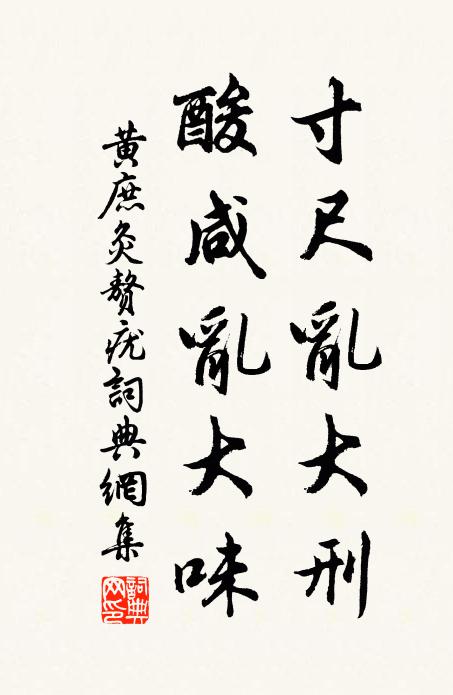 寸尺亂大刑
酸咸亂大味
黄庶灸贅疣詞典網集
詞典網印